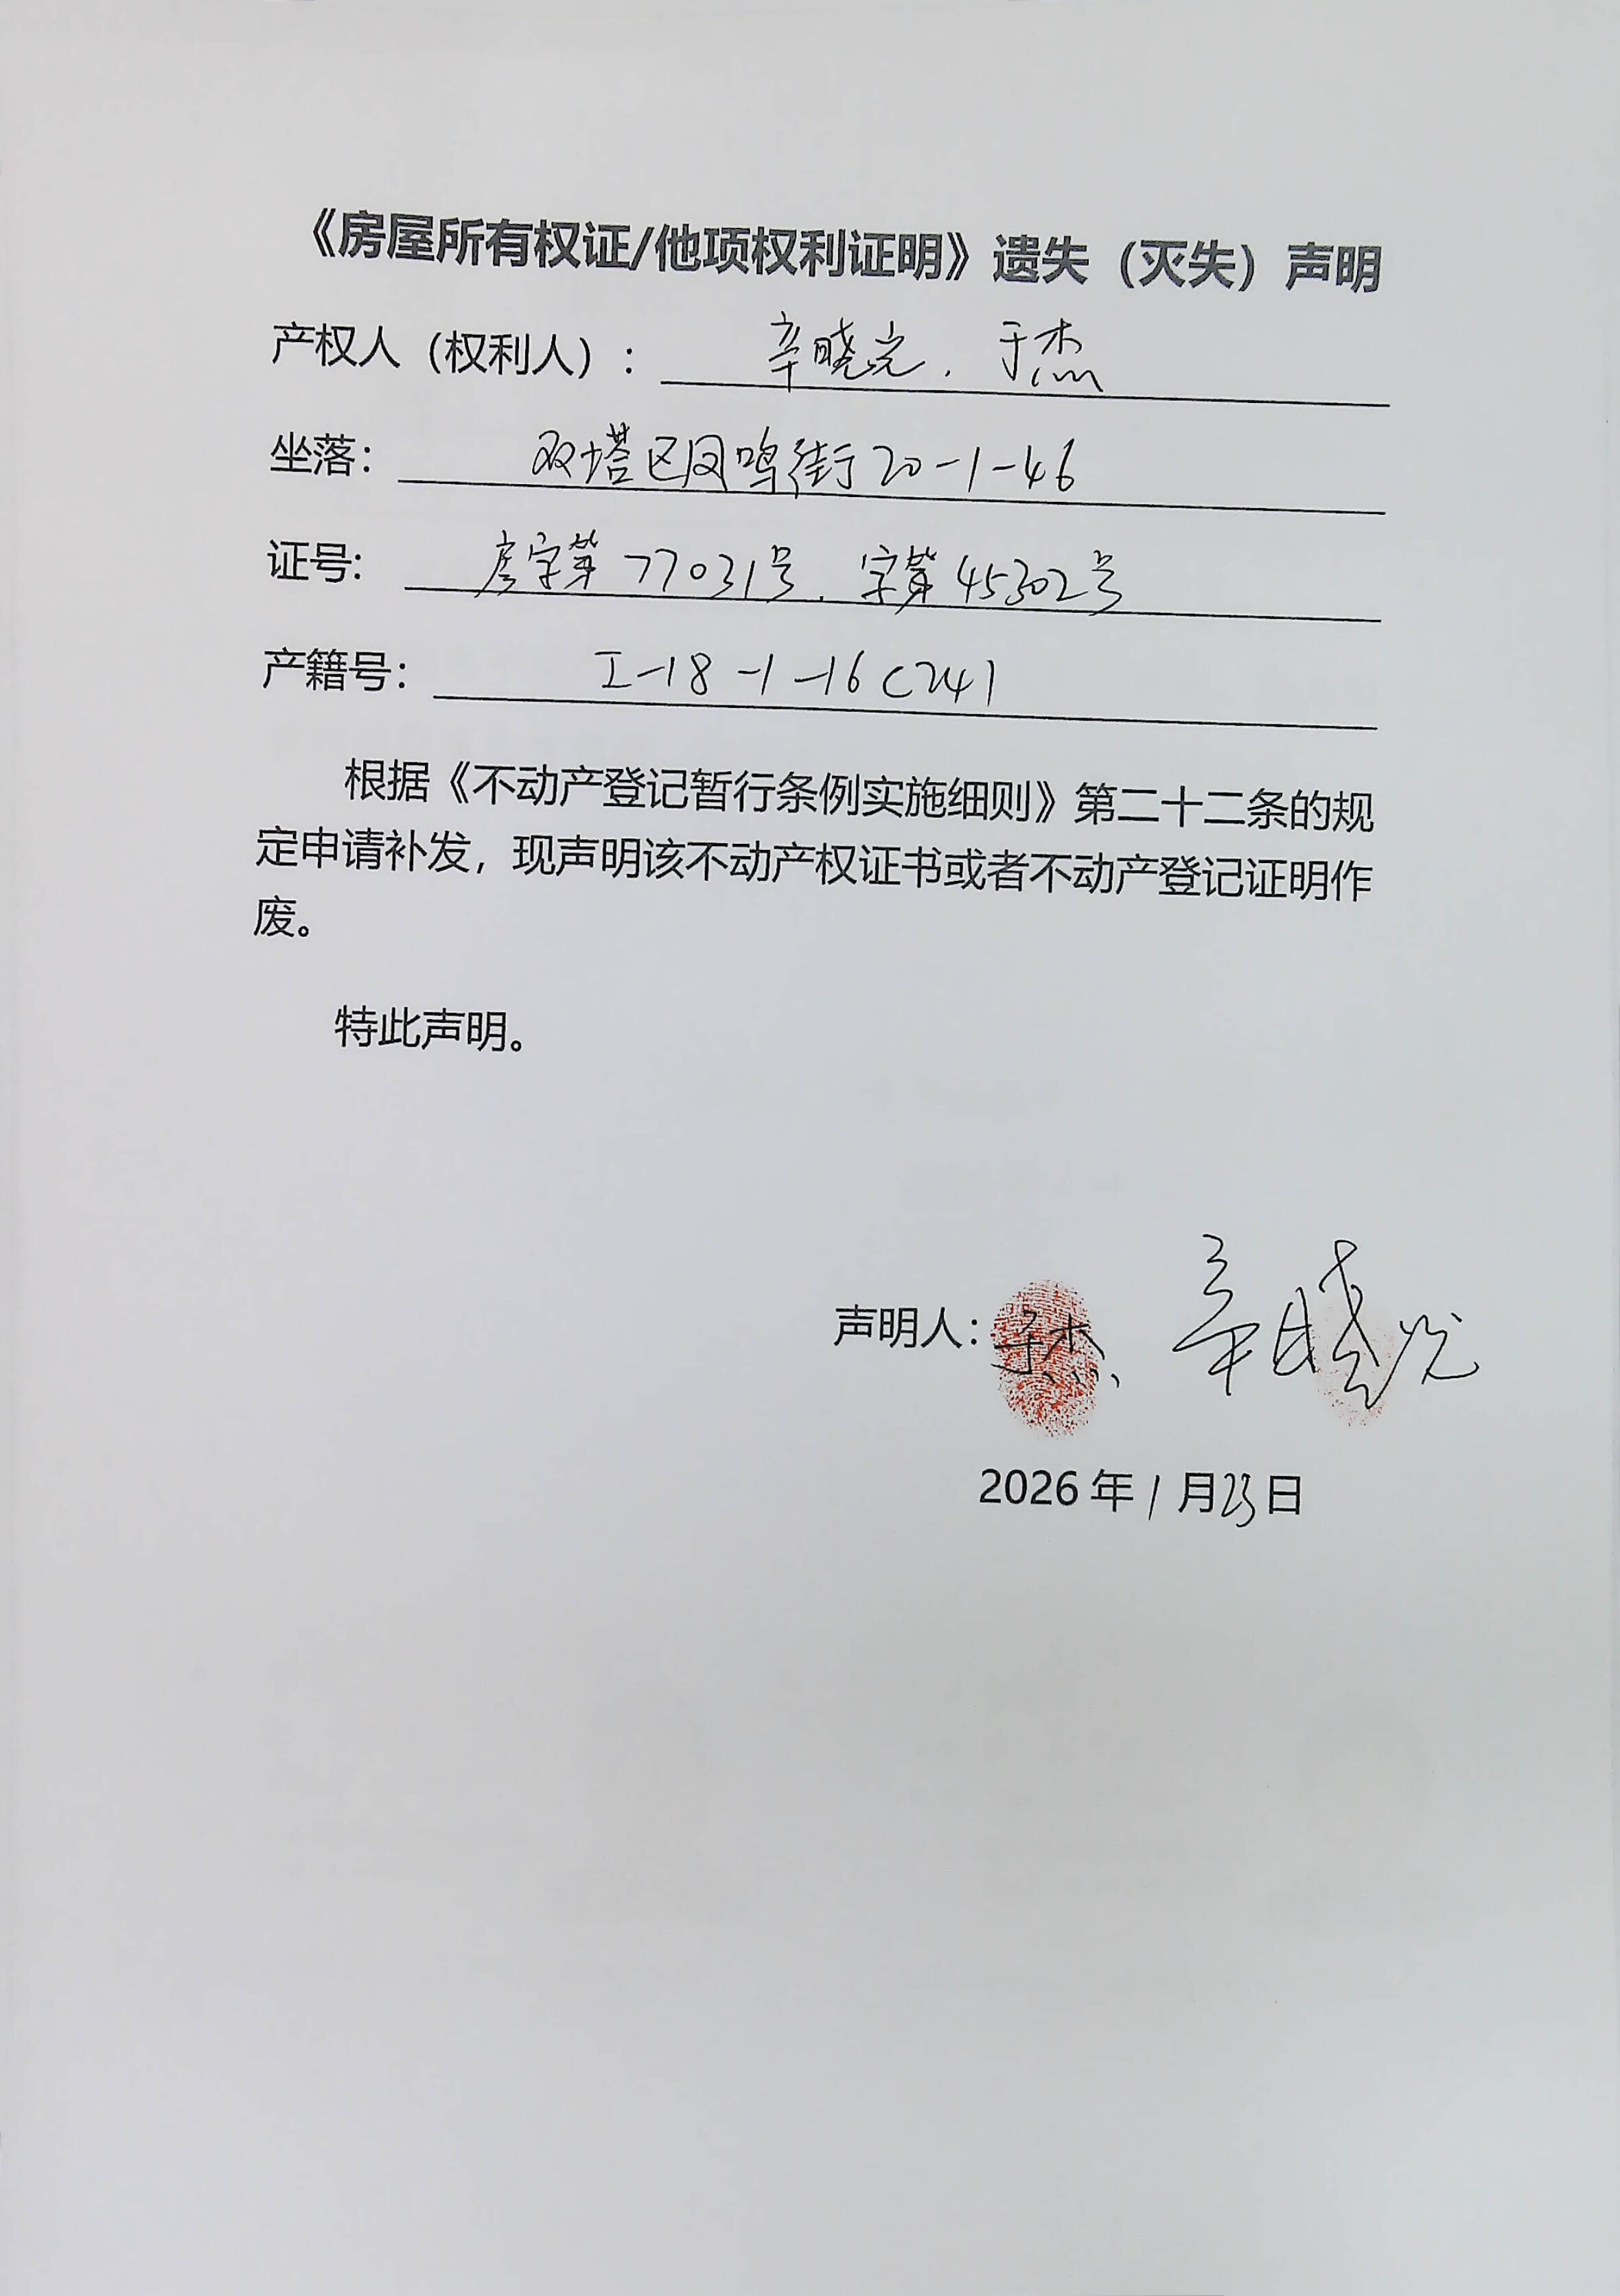 《房屋所有权证/他项权利证明》遗失（灭失）声明
产权人（权利人）： 辛晓光、于杰
坐落： 双塔区凤鸣街20-1-46
证号： 房字第77031号、字第45302号
产籍号： I-18-1-16C241
根据《不动产登记暂行条例实施细则》第二十二条的规
定申请补发，现声明该不动产权证书或者不动产登记证明作
废。
特此声明。
声明人：于杰 辛晓光
2026年1月23日